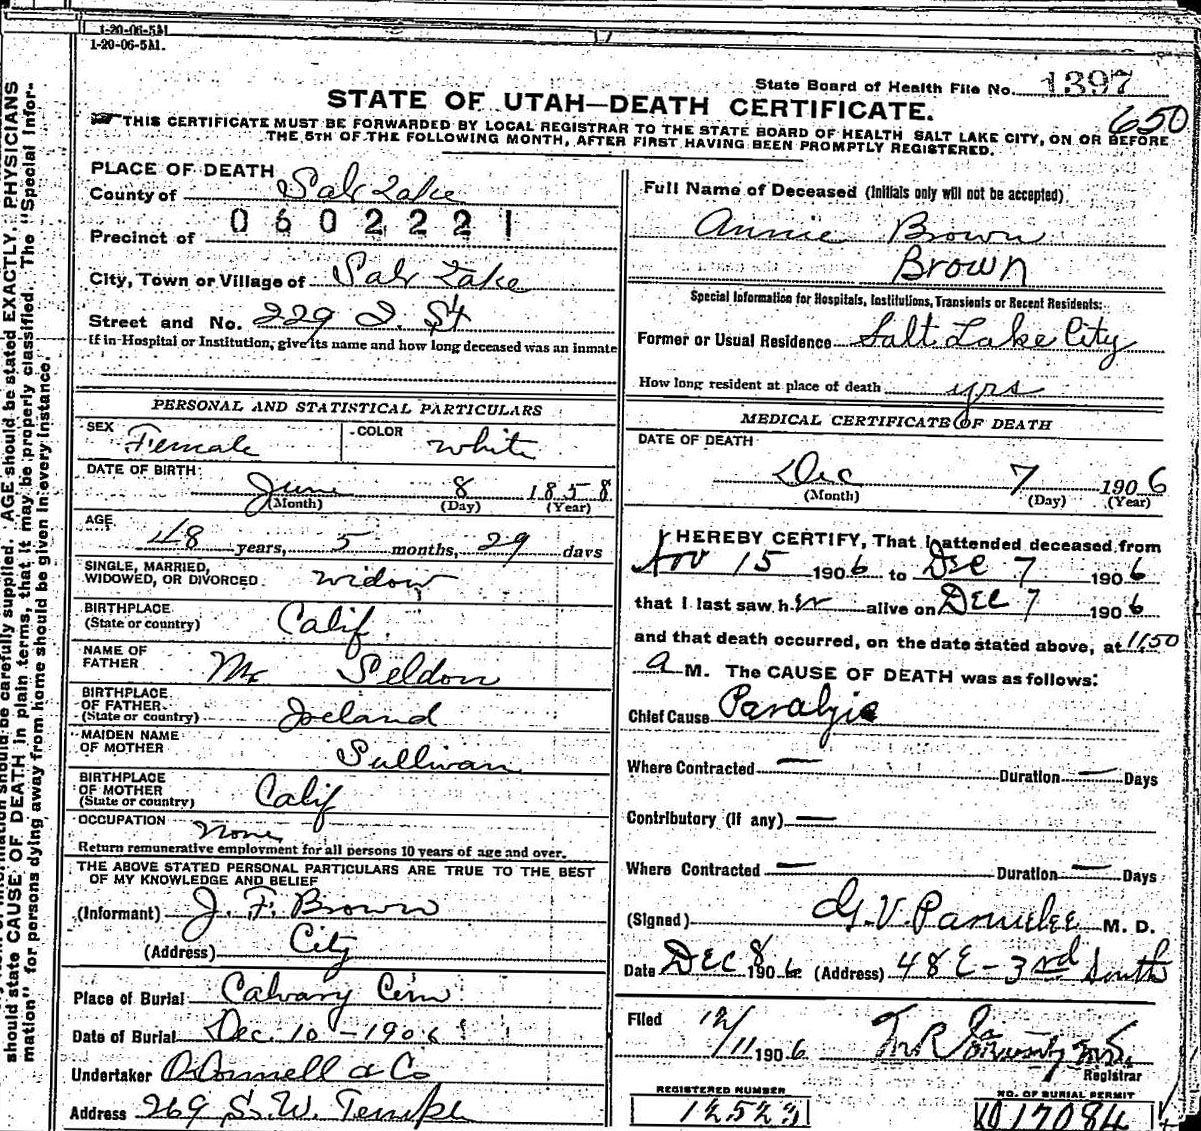 1-20-06-5M
1-20-06-5M.
State Board of Health File No. 1397
650
STATE OF UTAH—DEATH CERTIFICATE.
THIS CERTIFICATE MUST BE FORWARDED BY LOCAL REGISTRAR TO THE STATE BOARD OF HEALTH SALT LAKE CITY, ON OR BEFORE
THE 5TH OF THE FOLLOWING MONTH, AFTER FIRST HAVING BEEN PROMPTLY REGISTERED.
PLACE OF DEATH
County of Salt Lake
0602221
Precinct of
City, Town or Village of Salt Lake
Street and No. 229 I. St
If in Hospital or Institution, give its name and how long deceased was an inmate
PERSONAL AND STATISTICAL PARTICULARS
SEX Female COLOR white
DATE OF BIRTH:
June 8 1858
(Month) (Day) (Year)
AGE
48 years, 5 months, 29 days
SINGLE, MARRIED,
WIDOWED, OR DIVORCED widow
BIRTHPLACE
(State or country) Calif.
NAME OF
FATHER Mr Seldon
BIRTHPLACE
OF FATHER
(State or country) Ireland
MAIDEN NAME
OF MOTHER Sullivan
BIRTHPLACE
OF MOTHER
(State or country) Calif
OCCUPATION None
Return remunerative employment for all persons 10 years of age and over.
THE ABOVE STATED PERSONAL PARTICULARS ARE TRUE TO THE BEST
OF MY KNOWLEDGE AND BELIEF
(Informant) J. F. Brown
(Address) City
Place of Burial Calvary Cem
Date of Burial Dec. 10 - 1906
Undertaker O'Donnell & Co
Address 269 S. W. Temple
Full Name of Deceased (Initials only will not be accepted)
Annie Brown
Brown
Special Information for Hospitals, Institutions, Transients or Recent Residents:
Former or Usual Residence Salt Lake City
How long resident at place of death yrs
MEDICAL CERTIFICATE OF DEATH
DATE OF DEATH
Dec 7 1906
(Month) (Day) (Year)
I HEREBY CERTIFY, That I attended deceased from
Nov 15 1906 to Dec 7 1906
that I last saw her alive on Dec 7 1906
and that death occurred, on the date stated above, at 11,50
a M. The CAUSE OF DEATH was as follows:
Chief Cause
Where Contracted — Duration — Days
Contributory (if any) —
Where Contracted — Duration — Days
(Signed) M. D.
Date Dec 8 1906 (Address) 48 E - 3rd South
Filed 12/11 1906
Registrar
REGISTERED NUMBER
12523
NO. OF BURIAL PERMIT
17084
should be carefully supplied. AGE should be stated EXACTLY, PHYSICIANS
should state CAUSE OF DEATH in plain terms, that it may be properly classified. The "Special Infor-
mation" for persons dying away from home should be given in every instance.